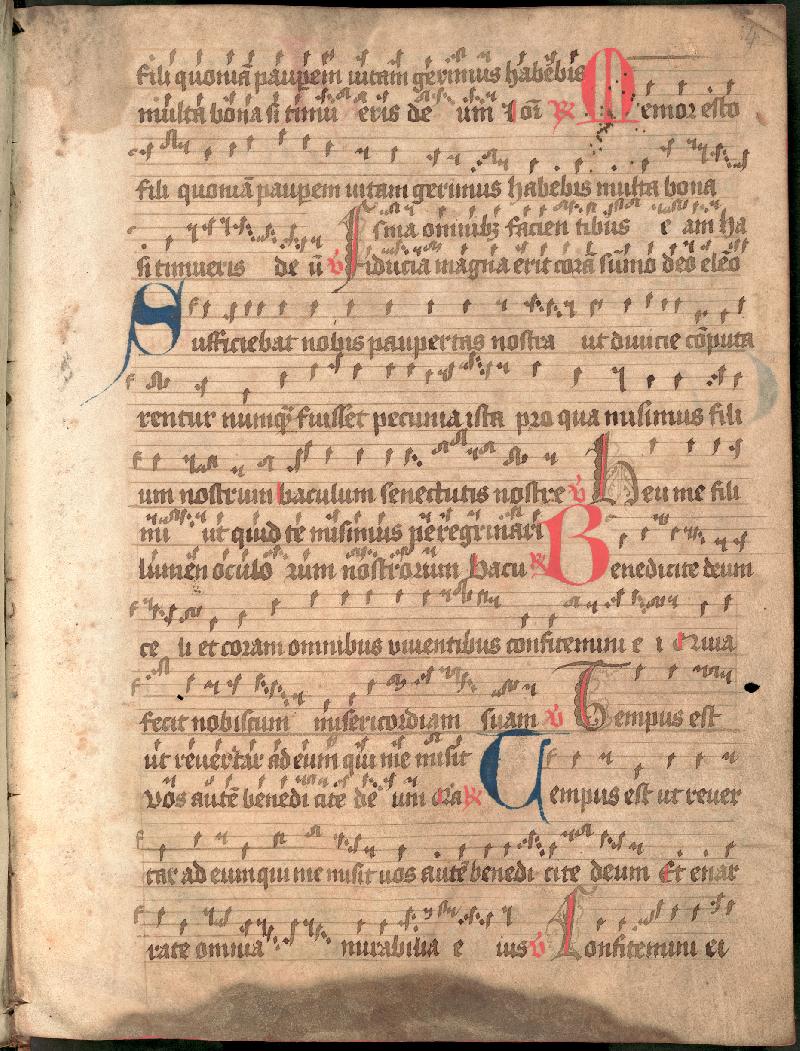 fili quoniā paupem uitam gerimus habebis
multa bona si timu eris de um ℟ Memor esto
fili quoniā paupem uitam gerimus habebis multa bona
sina omnibꝫ facien tibus e am ha
si timueris de ū v̄ Fiducia magna erit corā sūmo deo eleo
Sufficiebat nobis paupertas nostra ut diuicie cōputa
rentur numq̄ fuisset pecunia ista pro qua misimus fili
um nostrum baculum senectutis nostre v̄ Heu me fili
mi ut quid te misimus peregrinari
lumen oculo rum nostrorum Bacu ℟ Benedicite deum
ce li et coram omnibus viuentibus confitemini e i Quia
fecit nobiscum misericordiam suam v̄ Tempus est
ut reuertar ad eum qui me misit
vos autē benedi cite de um ℟ Tempus est ut reuer
tar ad eum qui me misit uos autē benedi cite deum Et enar
rate omnia mirabilia e ius v̄ Confitemini ei